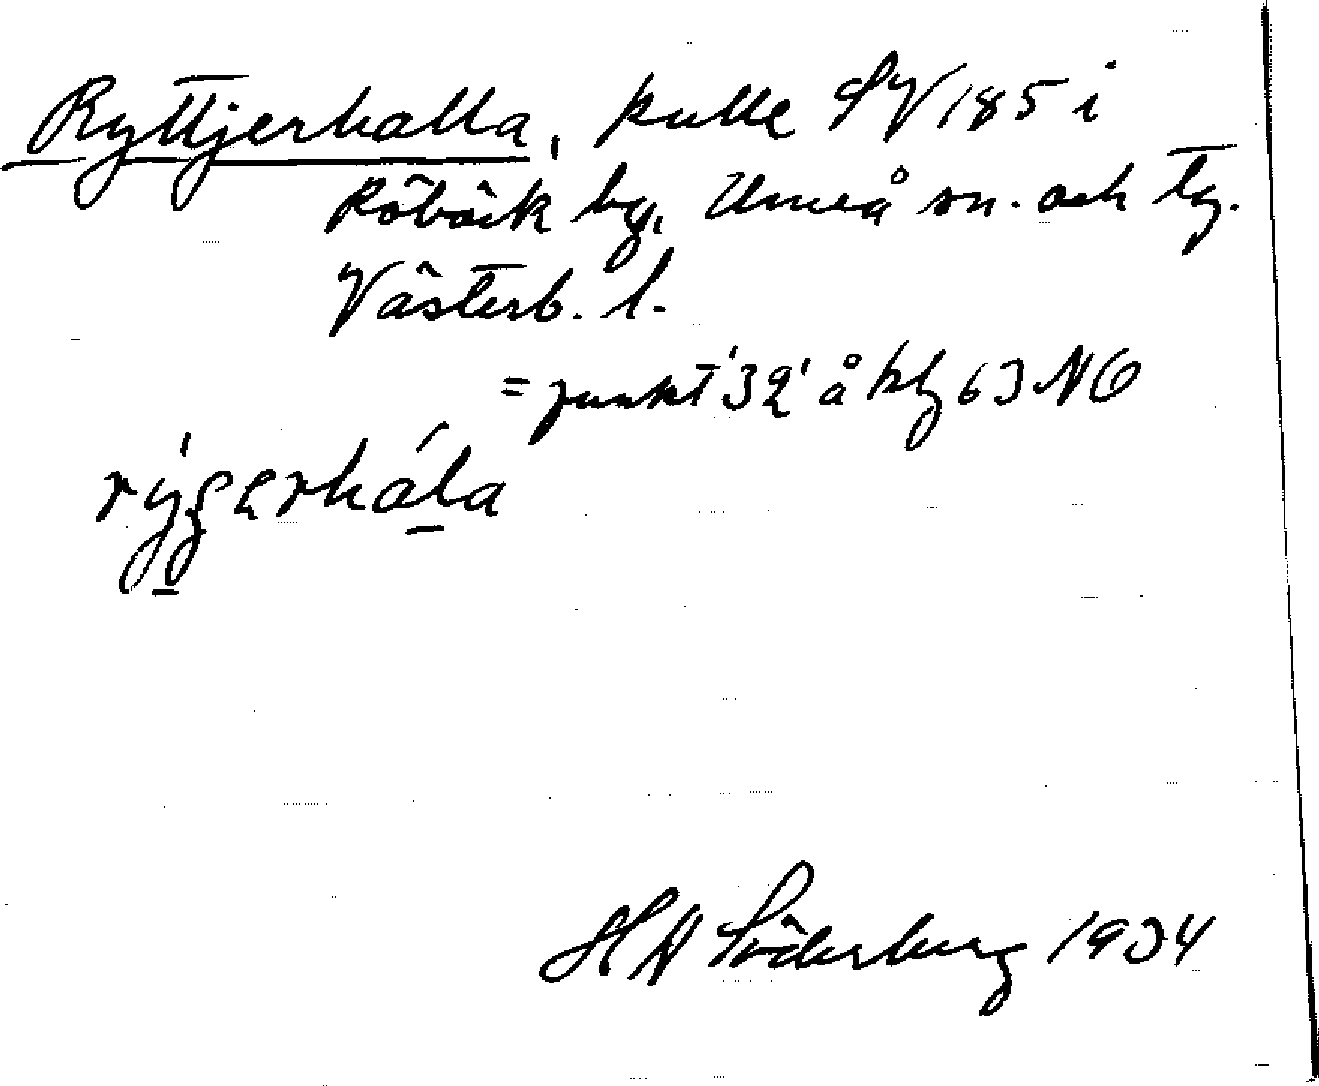 Ryttjerhalla, kulle SV 185 i
Röbäck by, Umeå sn. och tg.
Västerb. l.
= punkt '32' å kbl 63 NO
H W Söderberg 1934